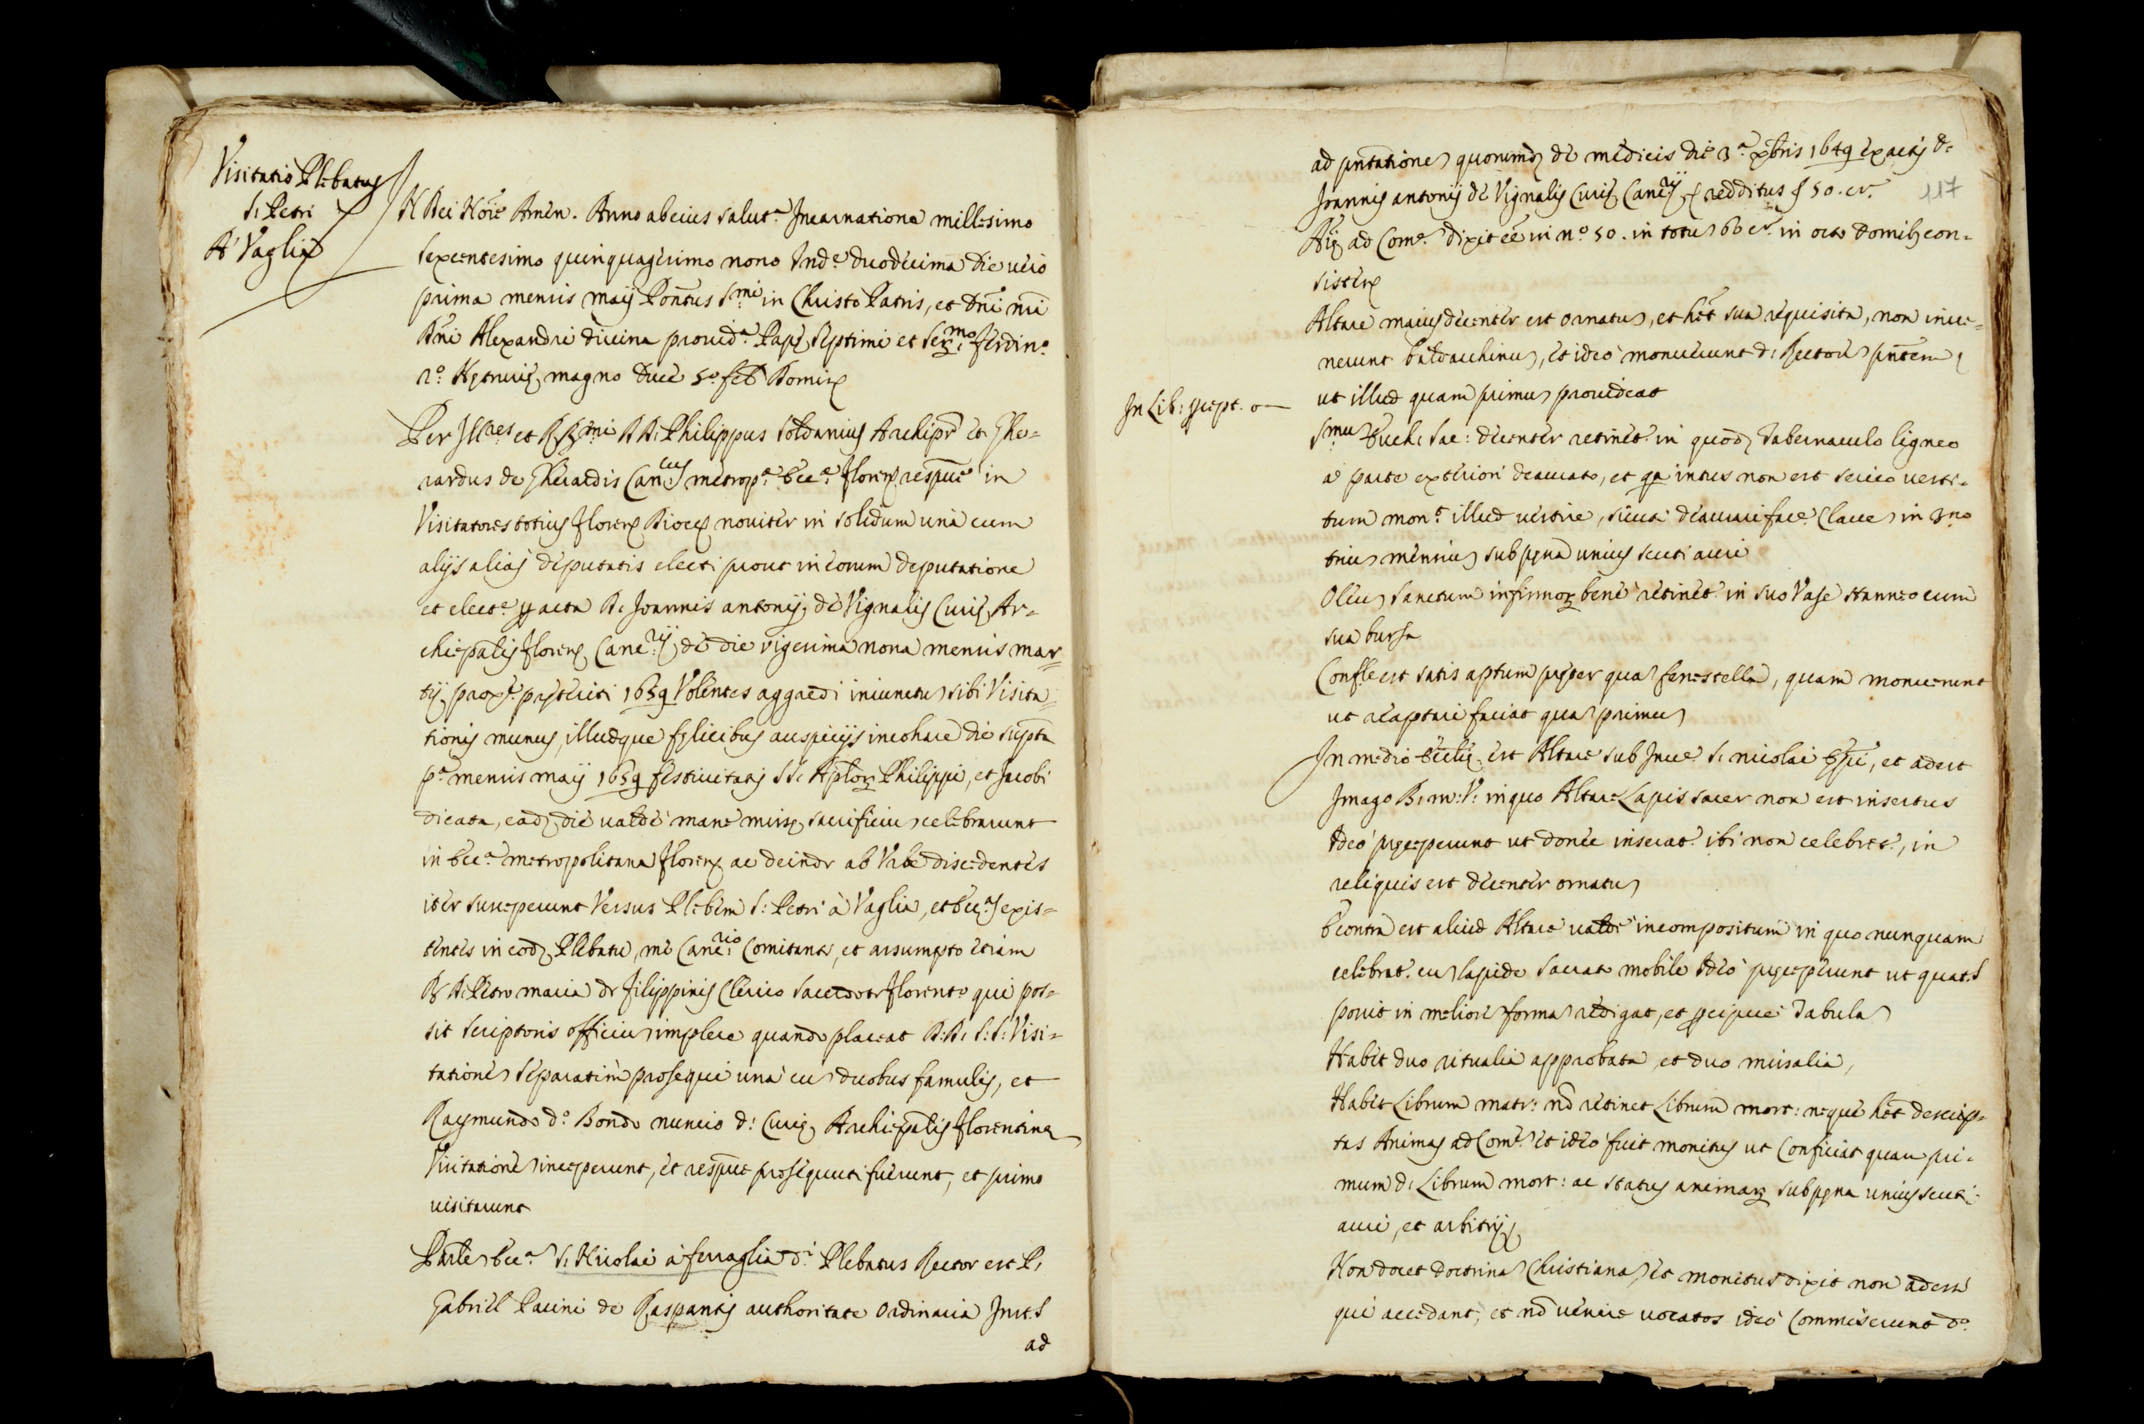 Visitatio Plebatus
S. Petri
A Vaglia
In Dei Noïe Amen. Anno ab eius salut.ª Incarnatione millesimo
sexcentesimo quinquagesimo nono Ind.e duodecima die vero
prima mensis maij Pontus S.mi in Christo Patris, et Dñi nři
Dñi Alexandri divina provid.ª Papę septimi et Ser.mo Ferdin.º
2.º Hetrurię magno Duce 5.º fel
Per Ill.res et RR.mi DD. Philippus Soldanius Archipr. et Ghe-
rardus de Gherardis Can.ci metrop.ª Ecc.ª Floren. respue in
Visitatores totius Floren. Dioces noviter in solidum una cum
alijs alias deputatis electi prout in eorum deputatione
et elect.e acta D. Joannis antonij de Vignalis Curię Ar-
chiepalis Floren. Canc.rij de die vigesima nona mensis mar-
tij prox.e pręteriti 1659 Volentes aggredi iniunctu sibi Visita-
tionis munus, illudque felicibus auspicijs incohare die supta
p.ª mensis maij 1659 festivitatis SS. Aplor Philippi, et Jacobi
dicata, ead. die valde mane missę sacrificiu celebrarunt
in Ecc.ª metropolitana Floren. ac deinde ab Vrbe discedentes
iter susceperunt Versus Plebem S. Petri à Vaglia, et Ecc.as exis-
tentes in eod. Plebatu, me Canc.rio Comitante, et assumpto etiam
R. D. Petro maria de Filippinis Clerico sacerdote Florent.º qui pos-
sit scriptoris officiu implere quando placeat D.D. S.S. Visi-
tatione separatim prosequi una cu duobus famulis, et
Raymundo d.º Bondo nuncio d. Curię Archiepalis Florentinę
Visitatione inceperunt, et respue prosequuti fuerunt, et primo
visitarunt
Parłe Ecc.ª S. Nicolai à ferraglia d.i Plebatus Rector est P.
Gabriel Pacini de Raspantis authoritate ordinaria Inst.s
ad
117
ad pntatione quorumd de medicis die 3.ª Xbris 1649 ex actis d.
Joannis antonij de Vignalis Curię Canc.rij redditus 50. cr.
Aię ad Com.e dixit eē in n.º 50. in totu 66 cr. in octo domib con-
sistere
Altare maius decenter est ornatu, et hēt sua requisita, non inve-
nerunt baldacchinu, et ideo monuerunt d. Rectore pntem
ut illud quam primu provideat
In Lib: pcept. o
S.mu Euch. Sac: decenter retinet.r in quod Tabernaculo ligneo
a parte exteriori deaurato, et qa intus non est serico vesti-
tum mon.t illud vestire, sicuti deaurari face.e Clave in 3.no
triu mensiu sub pęna unius scuti auri
Oleu sanctum infirmor bene retinet.r in suo Vase stanneo cum
sua bursa
Confle est satis aptum pręter qua fenestella, quam monuerunt
ut reaptari faciat qua primu
In medio Ecclię est Altare sub Invc.e S. nicolai Epī, et adest
Imago B. m. V. in quo Altare Lapis sacer non est insertus
Ideo pręceperunt ut donec inserat.r ibi non celebret.r, in
reliquis est decenter ornatu
Econtra est aliud Altare valde incompositum in quo nunquam
celebrat.r cu lapide sacrato mobile Ideo pręceperunt ut quat.s
possit in meliore forma redigat, et pcipue Tabula
Habet duo ritualia approbata et duo missalia,
Habet Librum matr: nō retinet Librum mort: neque hēt descrip-
tas Animas ad Com.e et ideo fuit monitus ut Conficiat quam pri-
mum d. Librum mort: ac status animar sub pęna unius scuti
auri, et arbitrij
Non docet doctrina Christiana et monitus dixit non adesse
qui accedant, et nō venire vocatos ideo Commiserunt d.º